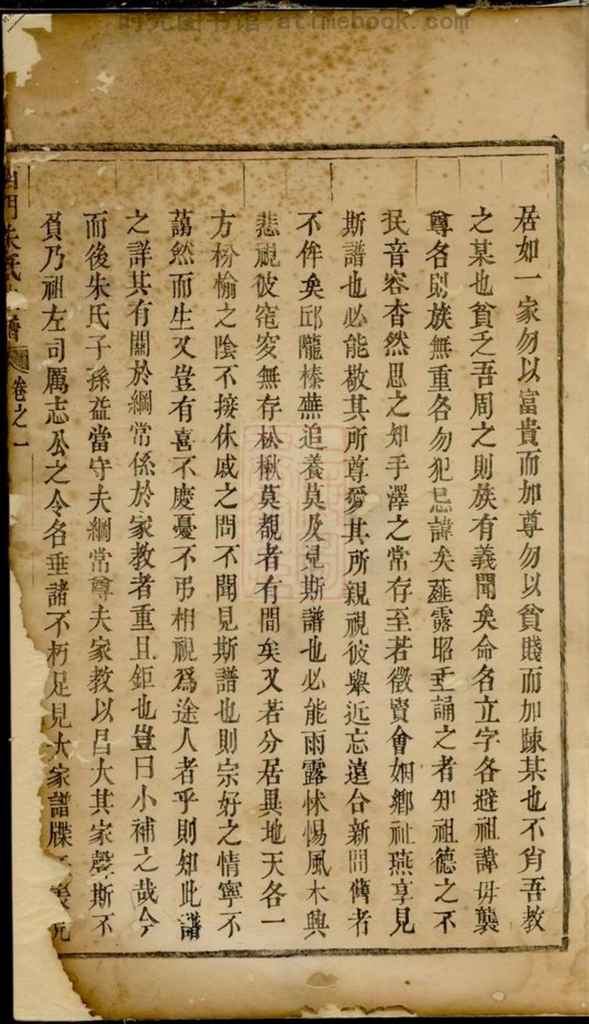 时光图书馆 - atimebook.com
居如一家勿以富貴而加尊勿以貧賤而加踈某也不肖吾教
之某也貧乏吾周之則族有義聞矣命名立字各避祖諱毋襲
尊各則族無重各勿犯忌諱矣薤露昭垂誦之者知祖德之不
民音容杳然思之知手澤之常存至若徵賢會姻鄉祉燕享見
斯譜也必能敬其所尊愛其所親視彼舉近忘遠合新間舊者
不侔矣邱隴榛蕪追養莫及見斯譜也必能雨露怵惕風木興
悲視彼窀穸無存松楸莫覩者有間矣又若分居異地天各一
方枌榆之陰不接休戚之問不聞見斯譜也則宗好之情寧不
藹然而生又豈有喜不慶憂不弔相視爲途人者乎則知此譜
之詳其有關於綱常係於家教者重且鉅也豈曰小補之哉今
而後朱氏子孫益當守夫綱常尊夫家教以昌大其家聲斯不
負乃祖左司厲志公之令名垂諸不朽足見大家譜牒
門朱氏 譜 卷之一